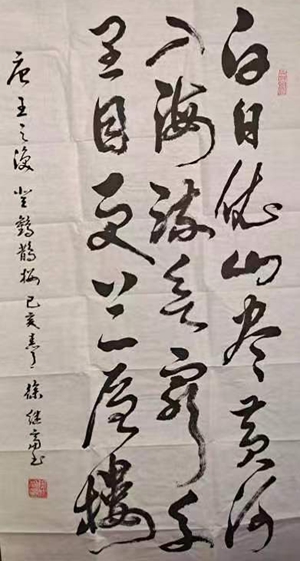 白日依山尽黄河
入海流欲穷千
里目更上一层楼
唐王之涣登鹳鹊楼己亥 徐继 书